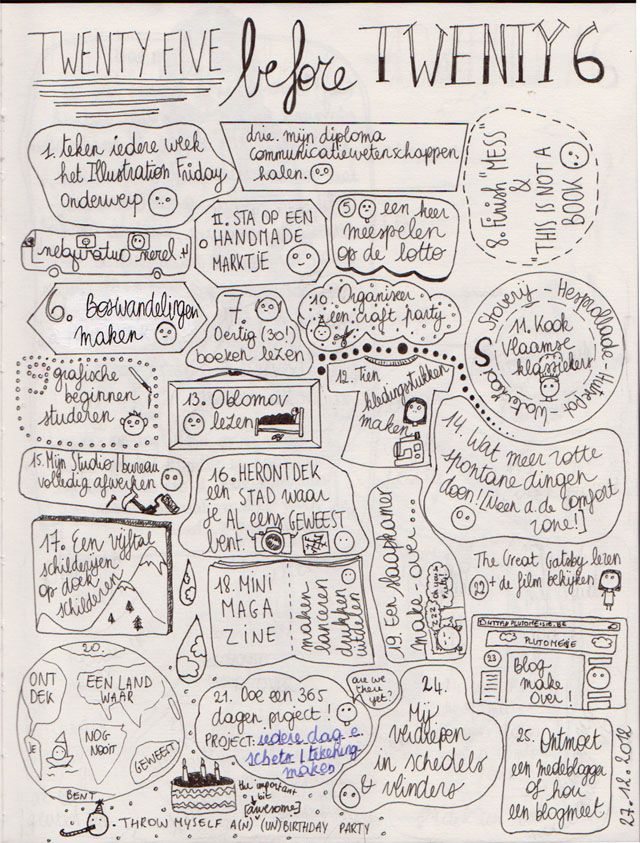 TWENTY FIVE before TWENTY 6
1. teken iedere week
het Illustration Friday
Onderwerp
drie. mijn diploma
communicatiewetenschappen
halen.
8. Finish "MESS"
&
"THIS IS NOT A
BOOK"
II. STA OP EEN
HANDMADE
MARKTJE
5 een keer
meespelen
op de lotto
6. Boswandelingen
maken
7.
Dertig (30!)
boeken lezen
10. Organiseer
een craft party
Stoverij - Hesprollade - Hutsepot - Waterzooi
11. Kook
Vlaamse
klassiekers
9 grafische
beginnen
studeren
13. Oblomov
lezen
12. Tien
kledingstukken
maken
14. Wat meer zotte
spontane dingen
doen! [Weer a. de comfort
zone!]
15. Mijn Studio/bureau
volledig afwerken
16. HERONTDEK
een STAD waar
je AL eens GEWEEST
bent.
17. Een vijftal
schilderijen
op doek
schilderen
18. MINI
MAGA
ZINE
maken
lanceren
drukken
uitdelen
19. Een slaapkamer
make-over...
The Great Gatsby lezen
22 + de film bekijken
HTTP://PLUTOMEISJE.BE
PLUTOMEISJE
23
Blog
make
over!
20.
ONT
DEK
EEN LAND
WAAR
JE
NOG
NOOIT
GEWEEST
BENT
21. Doe een 365
dagen project!
PROJECT: iedere dag e.
schets / tekening
maken
are we
there
yet?
24.
Mij
verdiepen
in schedels
& vlinders
25. Ontmoet
een medeblogger
of hou
een blogmeet
the important
bit
[awesome]
THROW MYSELF A(N) (UN)BIRTHDAY PARTY
27.12.2012